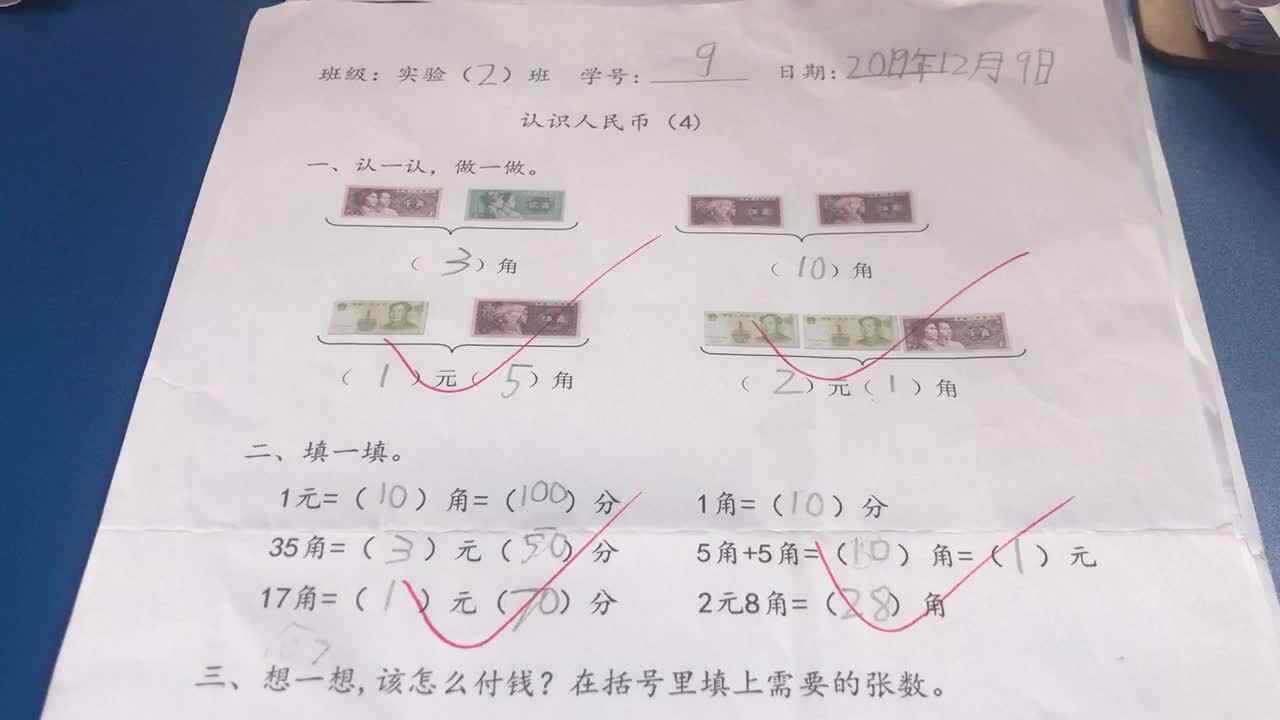 班级：实验（2）班 学号：9 日期：2019年12月9日
认识人民币（4）
一、认一认，做一做。
（3）角 （10）角
（1）元（5）角 （2）元（1）角
二、填一填。
1元=（10）角=（100）分 1角=（10）分
35角=（3）元（50）分 5角+5角=（10）角=（1）元
17角=（1）元（70）分 2元8角=（28）角
三、想一想，该怎么付钱？在括号里填上需要的张数。